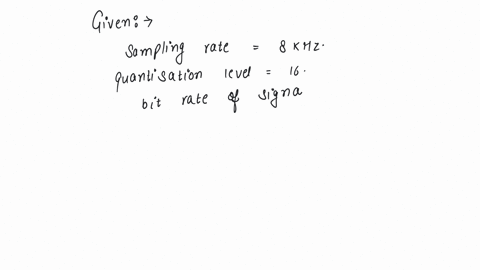 Given:→
sampling rate = 8 KHz.
quantisation level = 16.
bit rate of signa